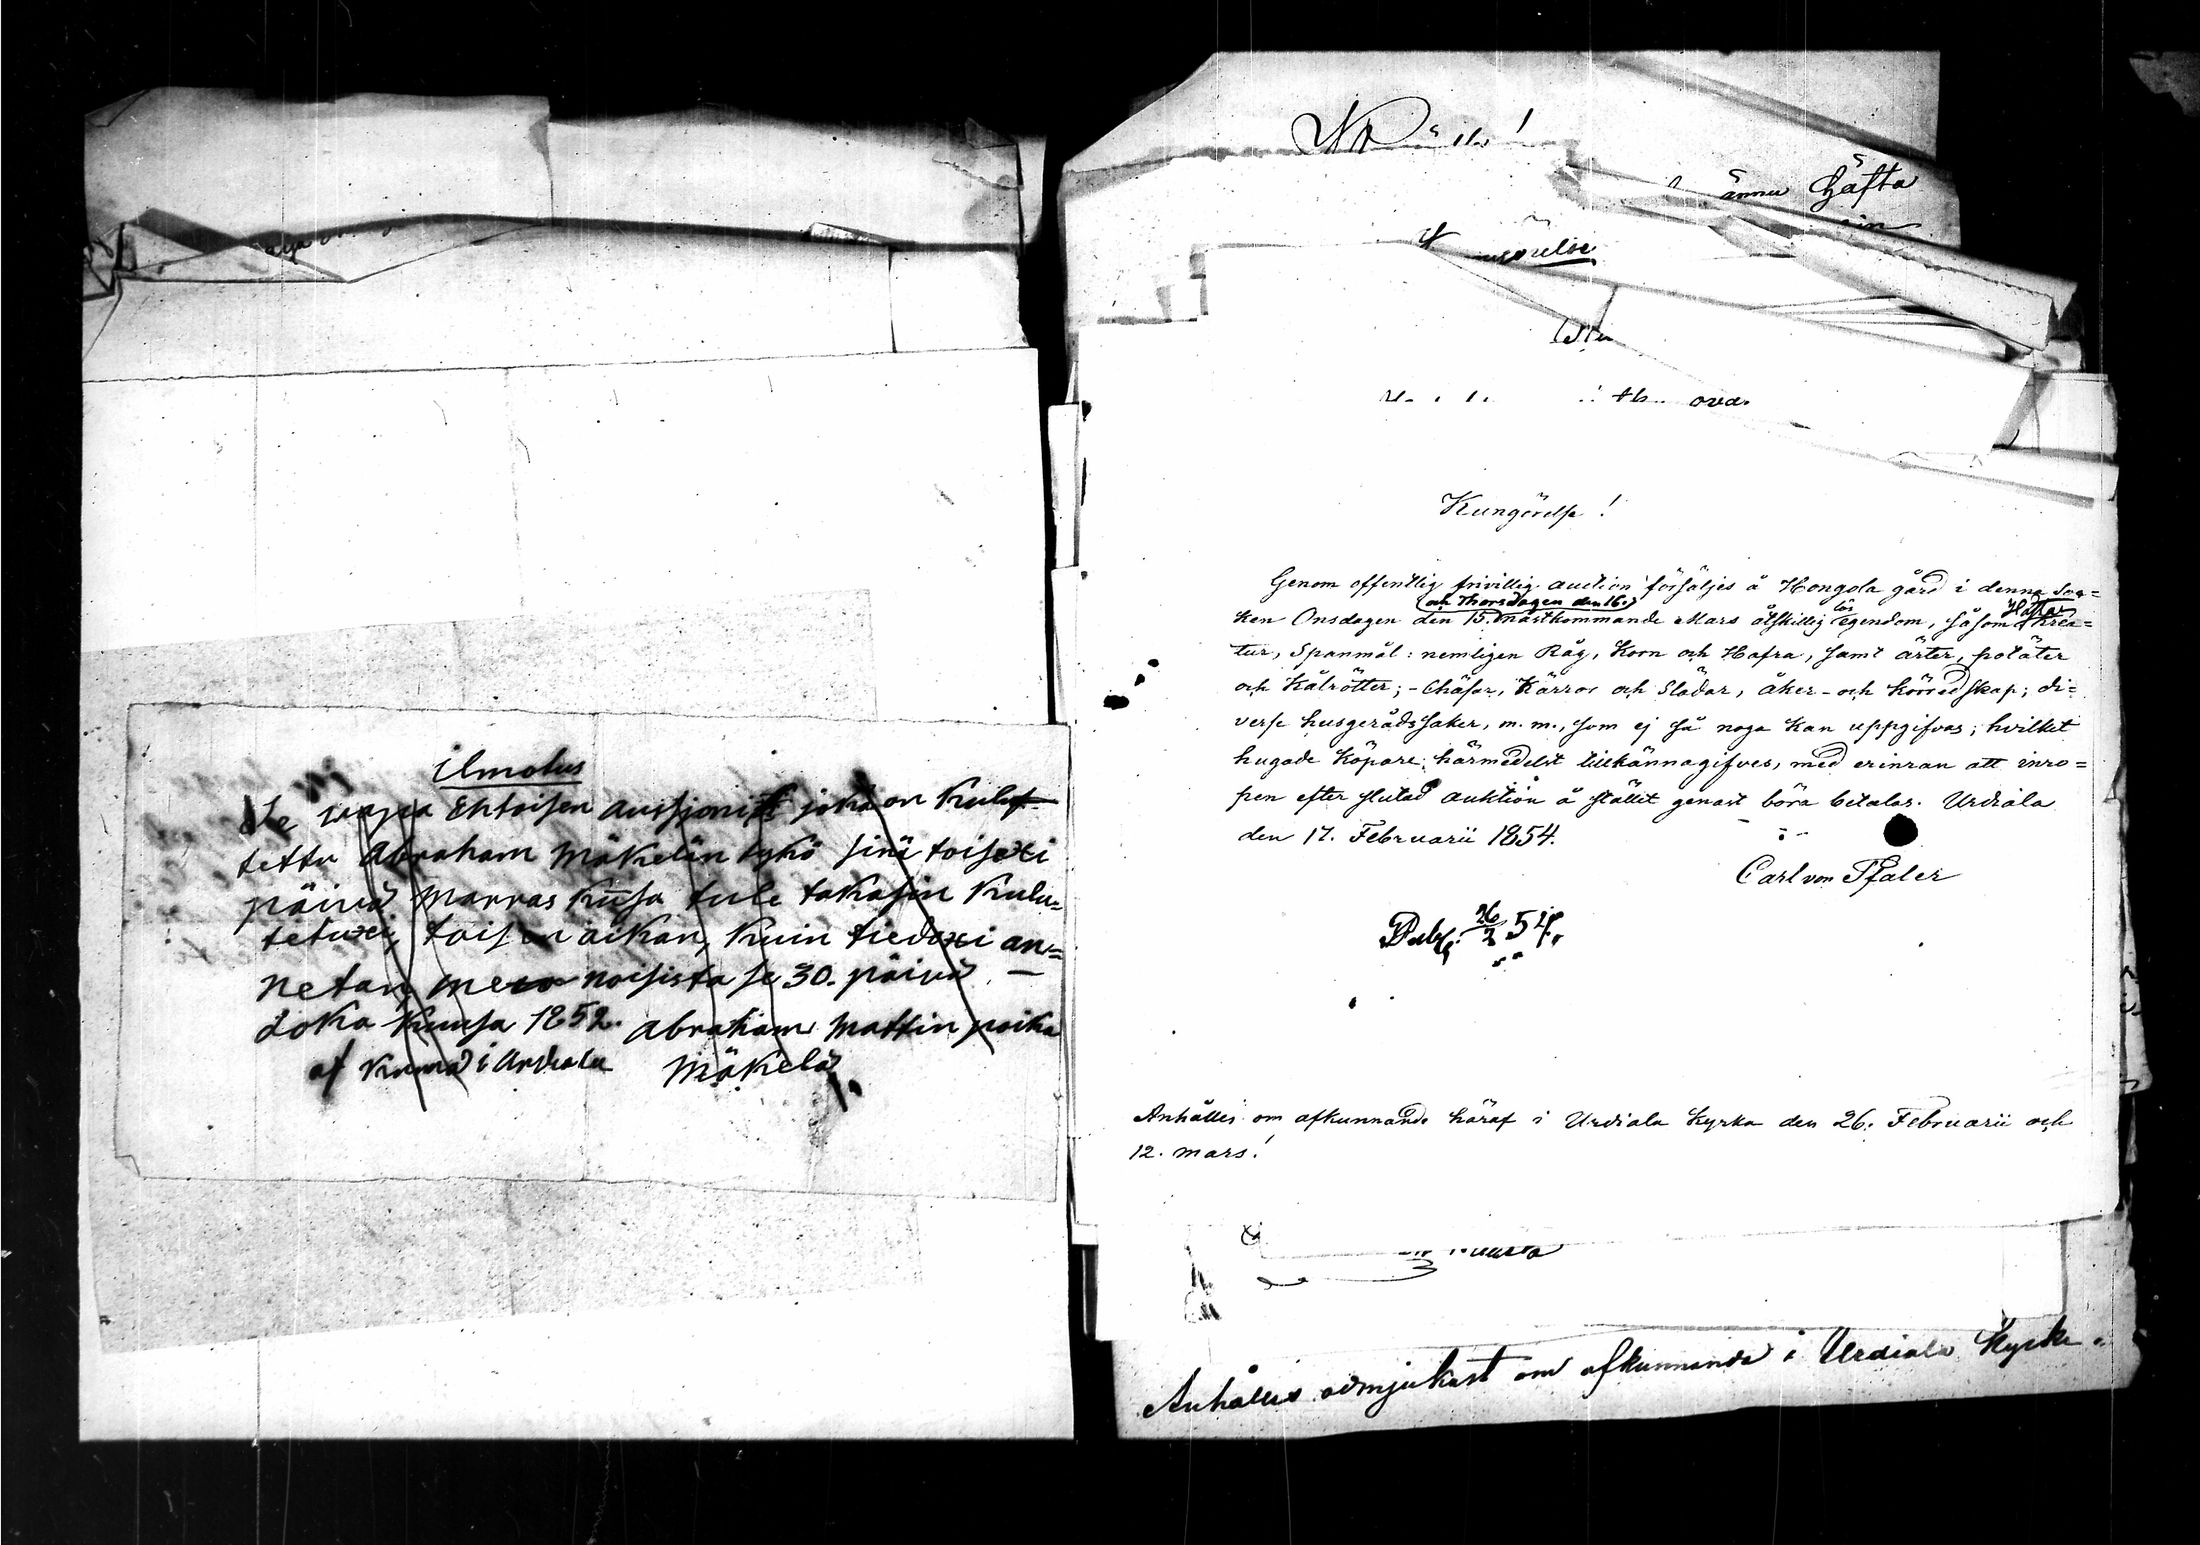 ilmotus
Se wapa Ehtoisen Autsjoni joka on Kulut
tettu Abraham Mäkelän tykö sinä toisexi
päivä Marras Kuusa tule takasin Kulu=
tetuxi, toisen aikan, Kuin tiedoxi an=
netan, noisista se 30. päivä
Loka Kuusa 1852. Abraham Mattin poika
af i Urdiala Mäkelä
ännu häfta
Kungörelse!
Genom offentlig frivillig auction försäljes å Hongola gård i denna Soc=
och Thorsdagen den 16.
ken Onsdagen den 15. nästkommande Mars åtskillig lös egendom, såsom Hästar Krea=
tur, Spanmål: nemligen Råg, Korn och Hafra, samt ärter, potäter
och Kålrötter; - Chäsar, Kärror och Slädar, åker- och Körredskap; di=
verse husgerådssaker, m. m., som ej så noga kan uppgifvas; hvilket
hugade Köpare härmedelst tillkännagifves, med erinran att inro=
pen efter slutad auktion å stället genast böra betalas. Urdiala
den 17. Februarii 1854.
Carl von Pfaler
Publ. 26/2 54.
Anhålles om afkunnande häraf i Urdiala Kyrka den 26. Februarii och
12. Mars!
Anhålles ödmjukast om afkunnande i Urdiala Kyrka